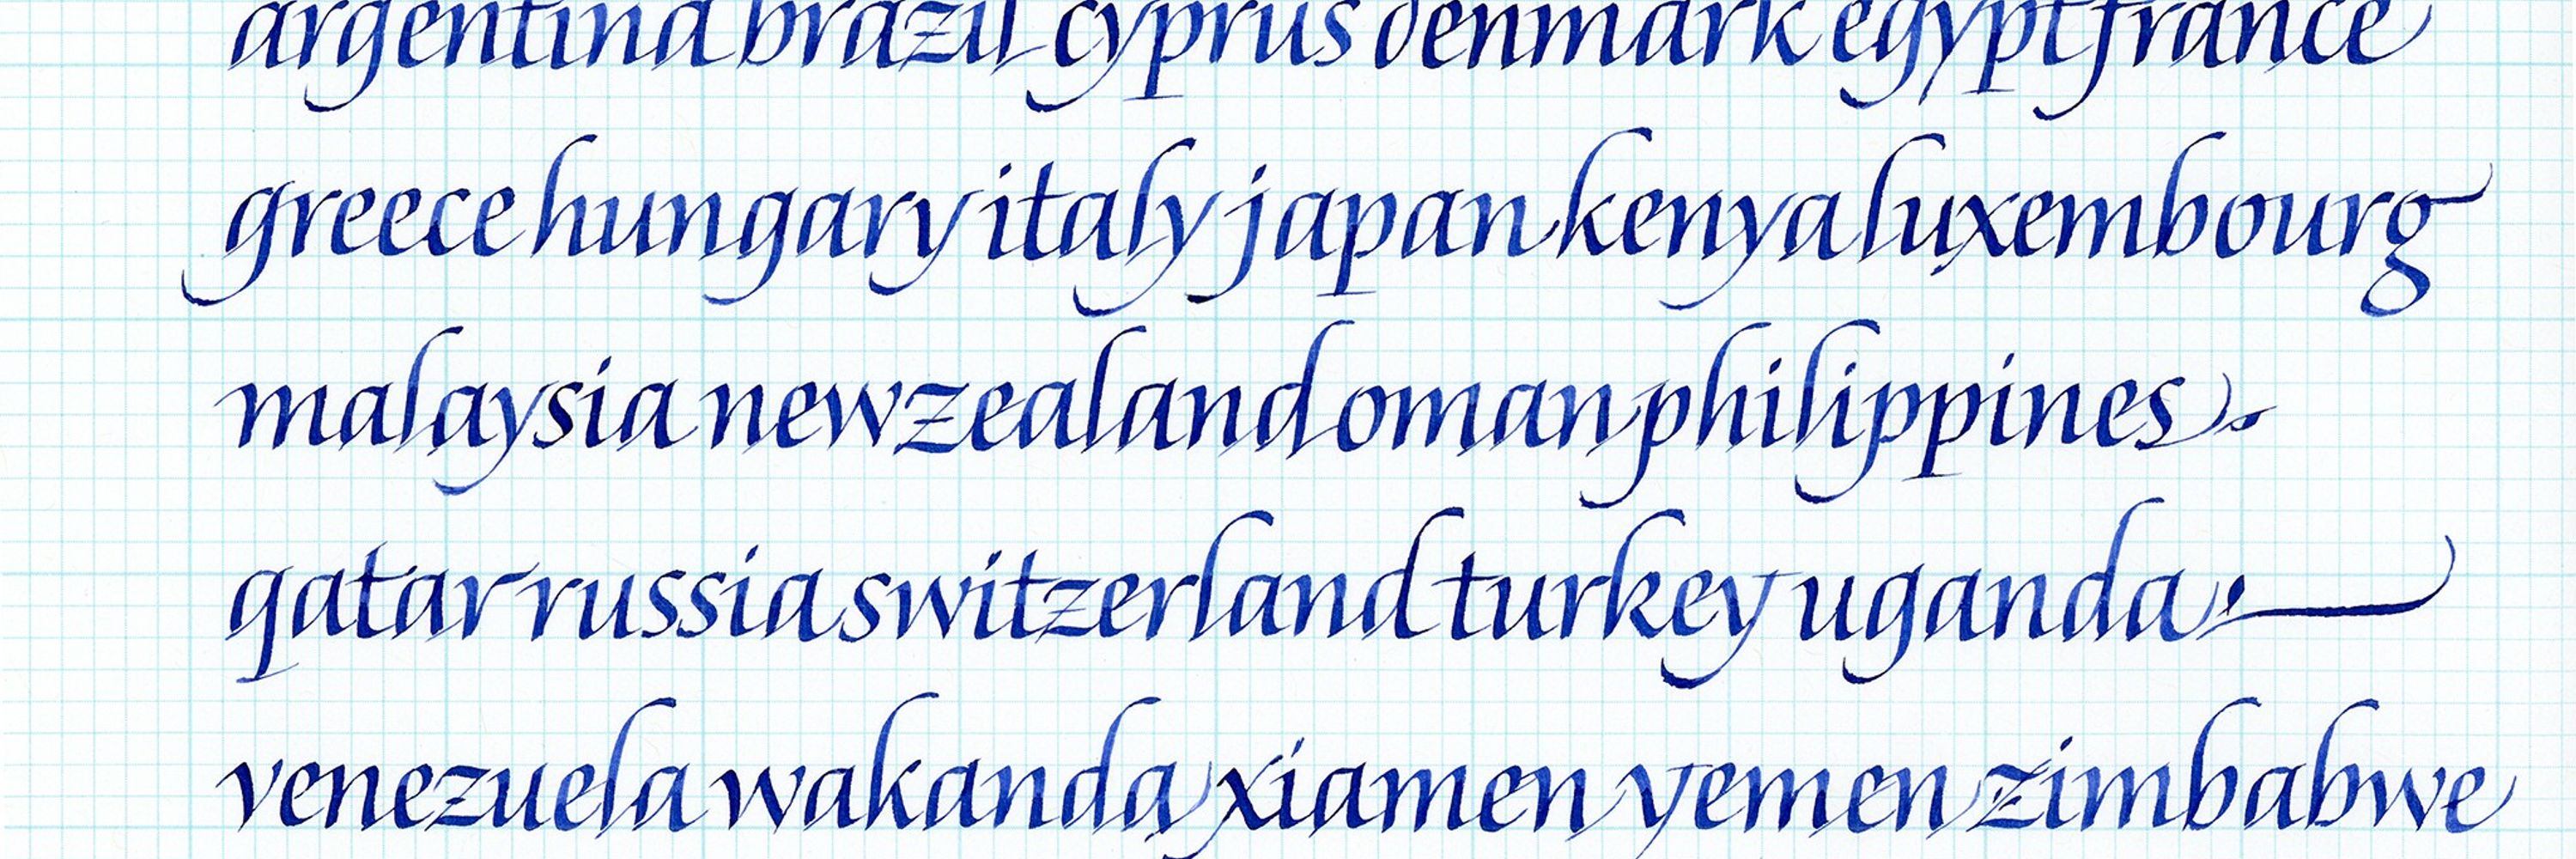 argentina brazil cyprus denmark egypt france
greece hungary italy japan kenya luxembourg
malaysia newzealand oman philippines
qatar russia switzerland turkey uganda
venezuela wakanda xiamen yemen zimbabwe